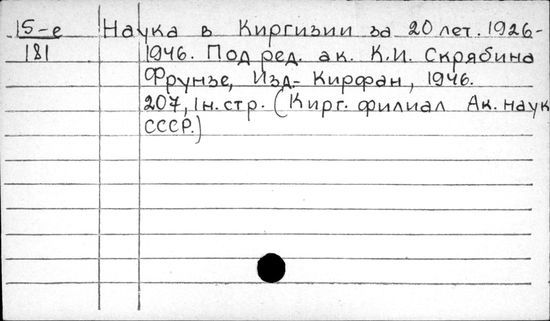 15-е Наука в Киргизии за 20 лет. 1926-
181 1946. Под ред. ак. К.И. Скрябина
Фрунзе, Изд- Кирфан, 1946.
207, 1н. стр. (Кирг. филиал Ак. наук
СССР.)